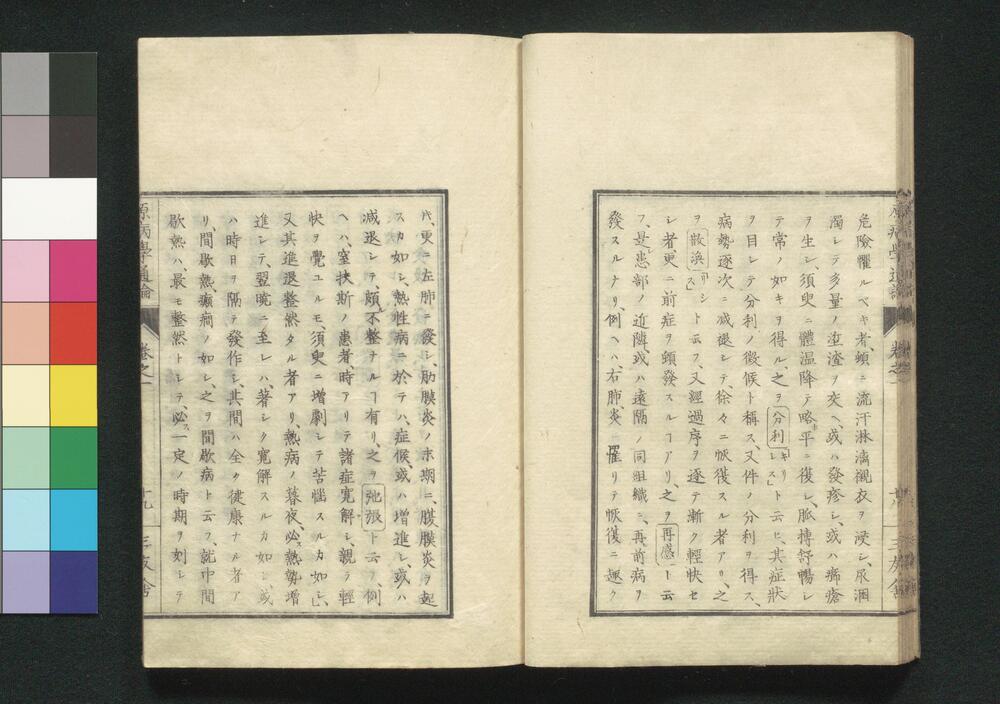 危險懼ルベキ者、頓ニ流汗淋漓襯衣ヲ浸シ、尿溷
濁シテ多量ノ渣ヲ夾ヘ、或ハ發疹シ、或ハ痂瘡
ヲ生シ、須臾ニ體温降テ略平ニ復シ、脈搏舒暢シ
テ常ノ如キヲ得ル、之ヲ分利キリシスト云ヒ、其症狀
ヲ目シテ分利ノ徴候ト稱ス、又件ノ分利ヲ得ス、
病勢逐次ニ减退シテ、徐々ニ恢復スル者アリ、之
ヲ散渙リシスト云フ、又經過序ヲ逐テ漸ク輕快セ
シ者更ニ前症ヲ頓發スルヿアリ、之ヲ再感ト云
フ、是レ患部ノ近隣或ハ遠隔ノ同組織ニ、再前病ヲ
發スルナリ、例ヘハ、右肺炎ニ罹リテ恢復ニ趣ク
原病學通論
卷之一
三友舍
代、更ニ左肺ニ發シ、肋膜炎ノ末期ニ、腹膜炎ヲ起
スカ如シ、熱性病ニ於テハ、症候或ハ增進シ、或ハ
减退シテ、頗ル不整ナルヿ有リ、之ヲ弛張ト云フ、例
ヘハ、窒扶斯ノ患者、時アリテ諸症寛解シ、親ラ輕
快ヲ覺ユルモ、須臾ニ增劇シテ苦惱スルカ如シ、
又其進退整然タル者アリ、熱病ノ暮夜、必ス熱勢增
進シテ、翌曉ニ至レハ、著シク寛解スルカ如シ、或
ハ時日ヲ隔テ發作シ、其間ハ全ク健康ナル者ア
リ、間歇熱癲癇ノ如シ、之ヲ間歇病ト云フ、就中間
歇熱ハ、最モ整然トシテ、必ス一定ノ時期ヲ刻シテ
原病學通論
卷之一
十九
三友舍